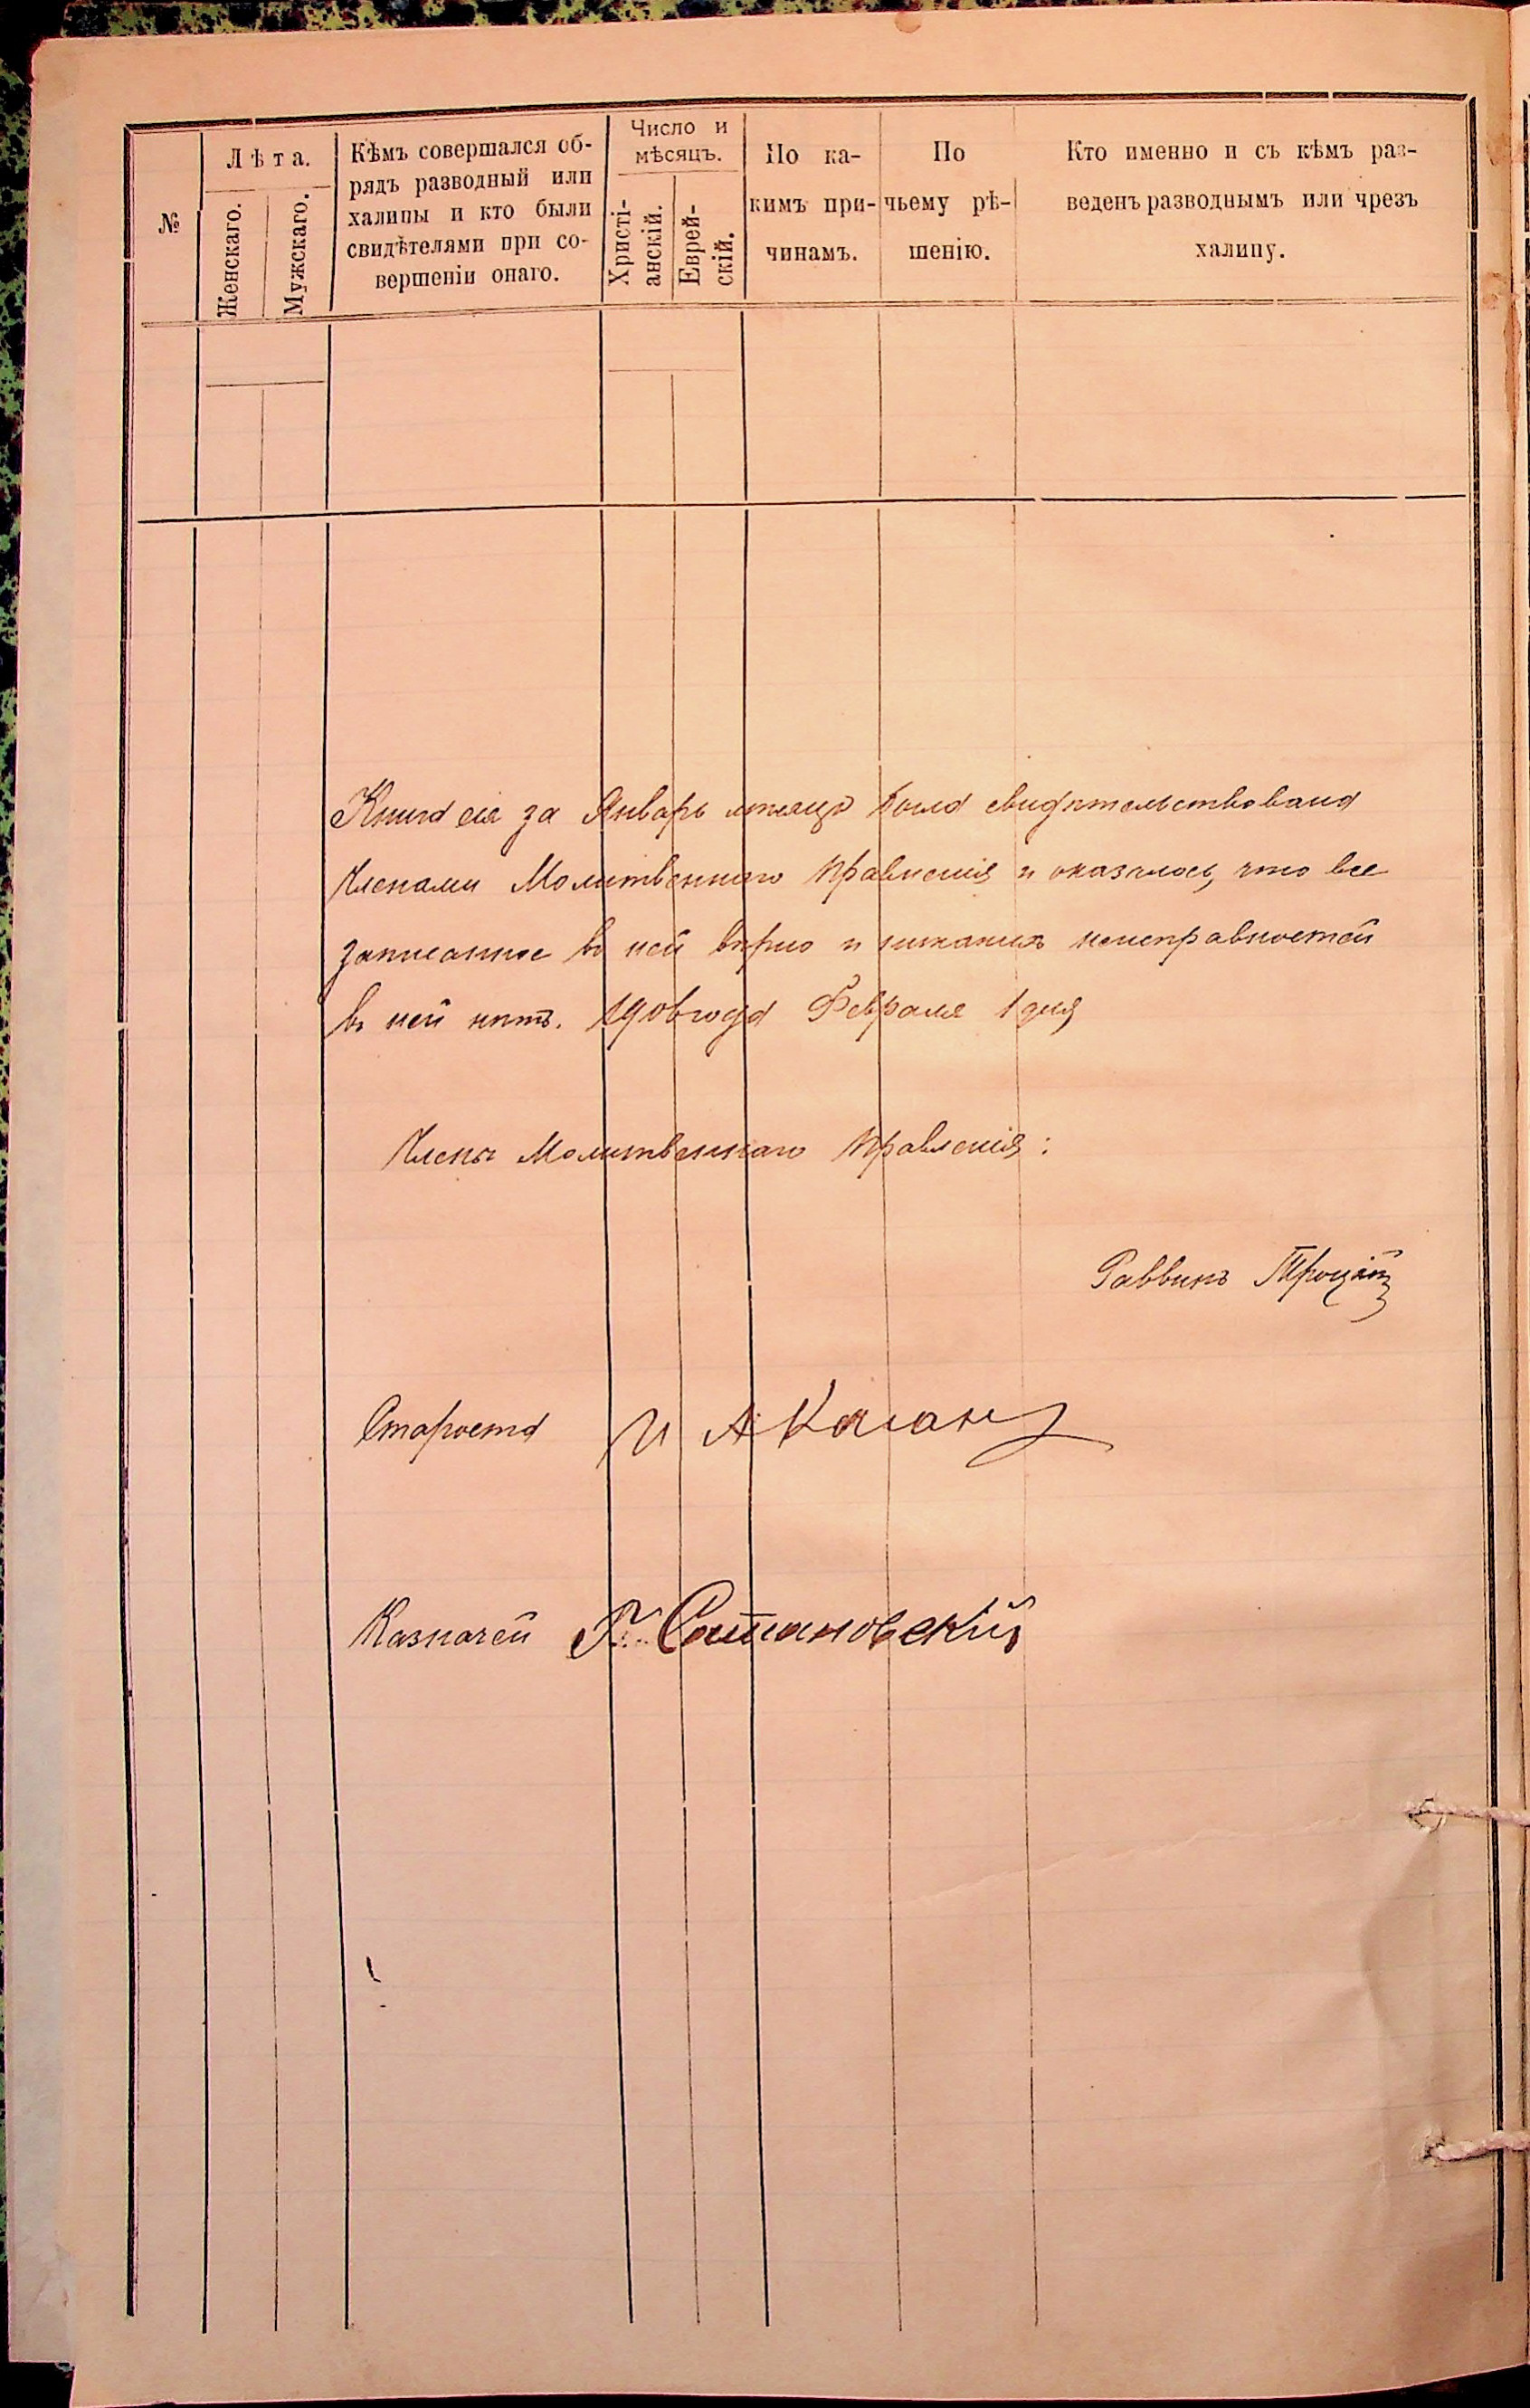 №
Лѣта.
Женскаго.
Мужскаго.
Кѣмъ совершался об-
рядъ разводный или
халицы и кто были
свидѣтелями при со-
вершеніи онаго.
Число и
мѣсяцъ.
Христі-
анскій.
Еврей-
скій.
По ка-
кимъ при-
чинамъ.
По
чьему рѣ-
шенію.
Кто именно и съ кѣмъ раз-
веденъ разводнымъ или чрезъ
халицу.
Книга сія за Январь мѣсяцъ была свидѣтельствована
Членами Молитвеннаго Правленія и оказалось, что все
записанное въ ней вѣрно и никакихъ неисправностей
въ ней нѣтъ. 1906 года Февраля 1 дня
Члены Молитвеннаго Правленія:
Раввинъ Троцкій
Староста И А Каганъ
Казначей Сатановскій